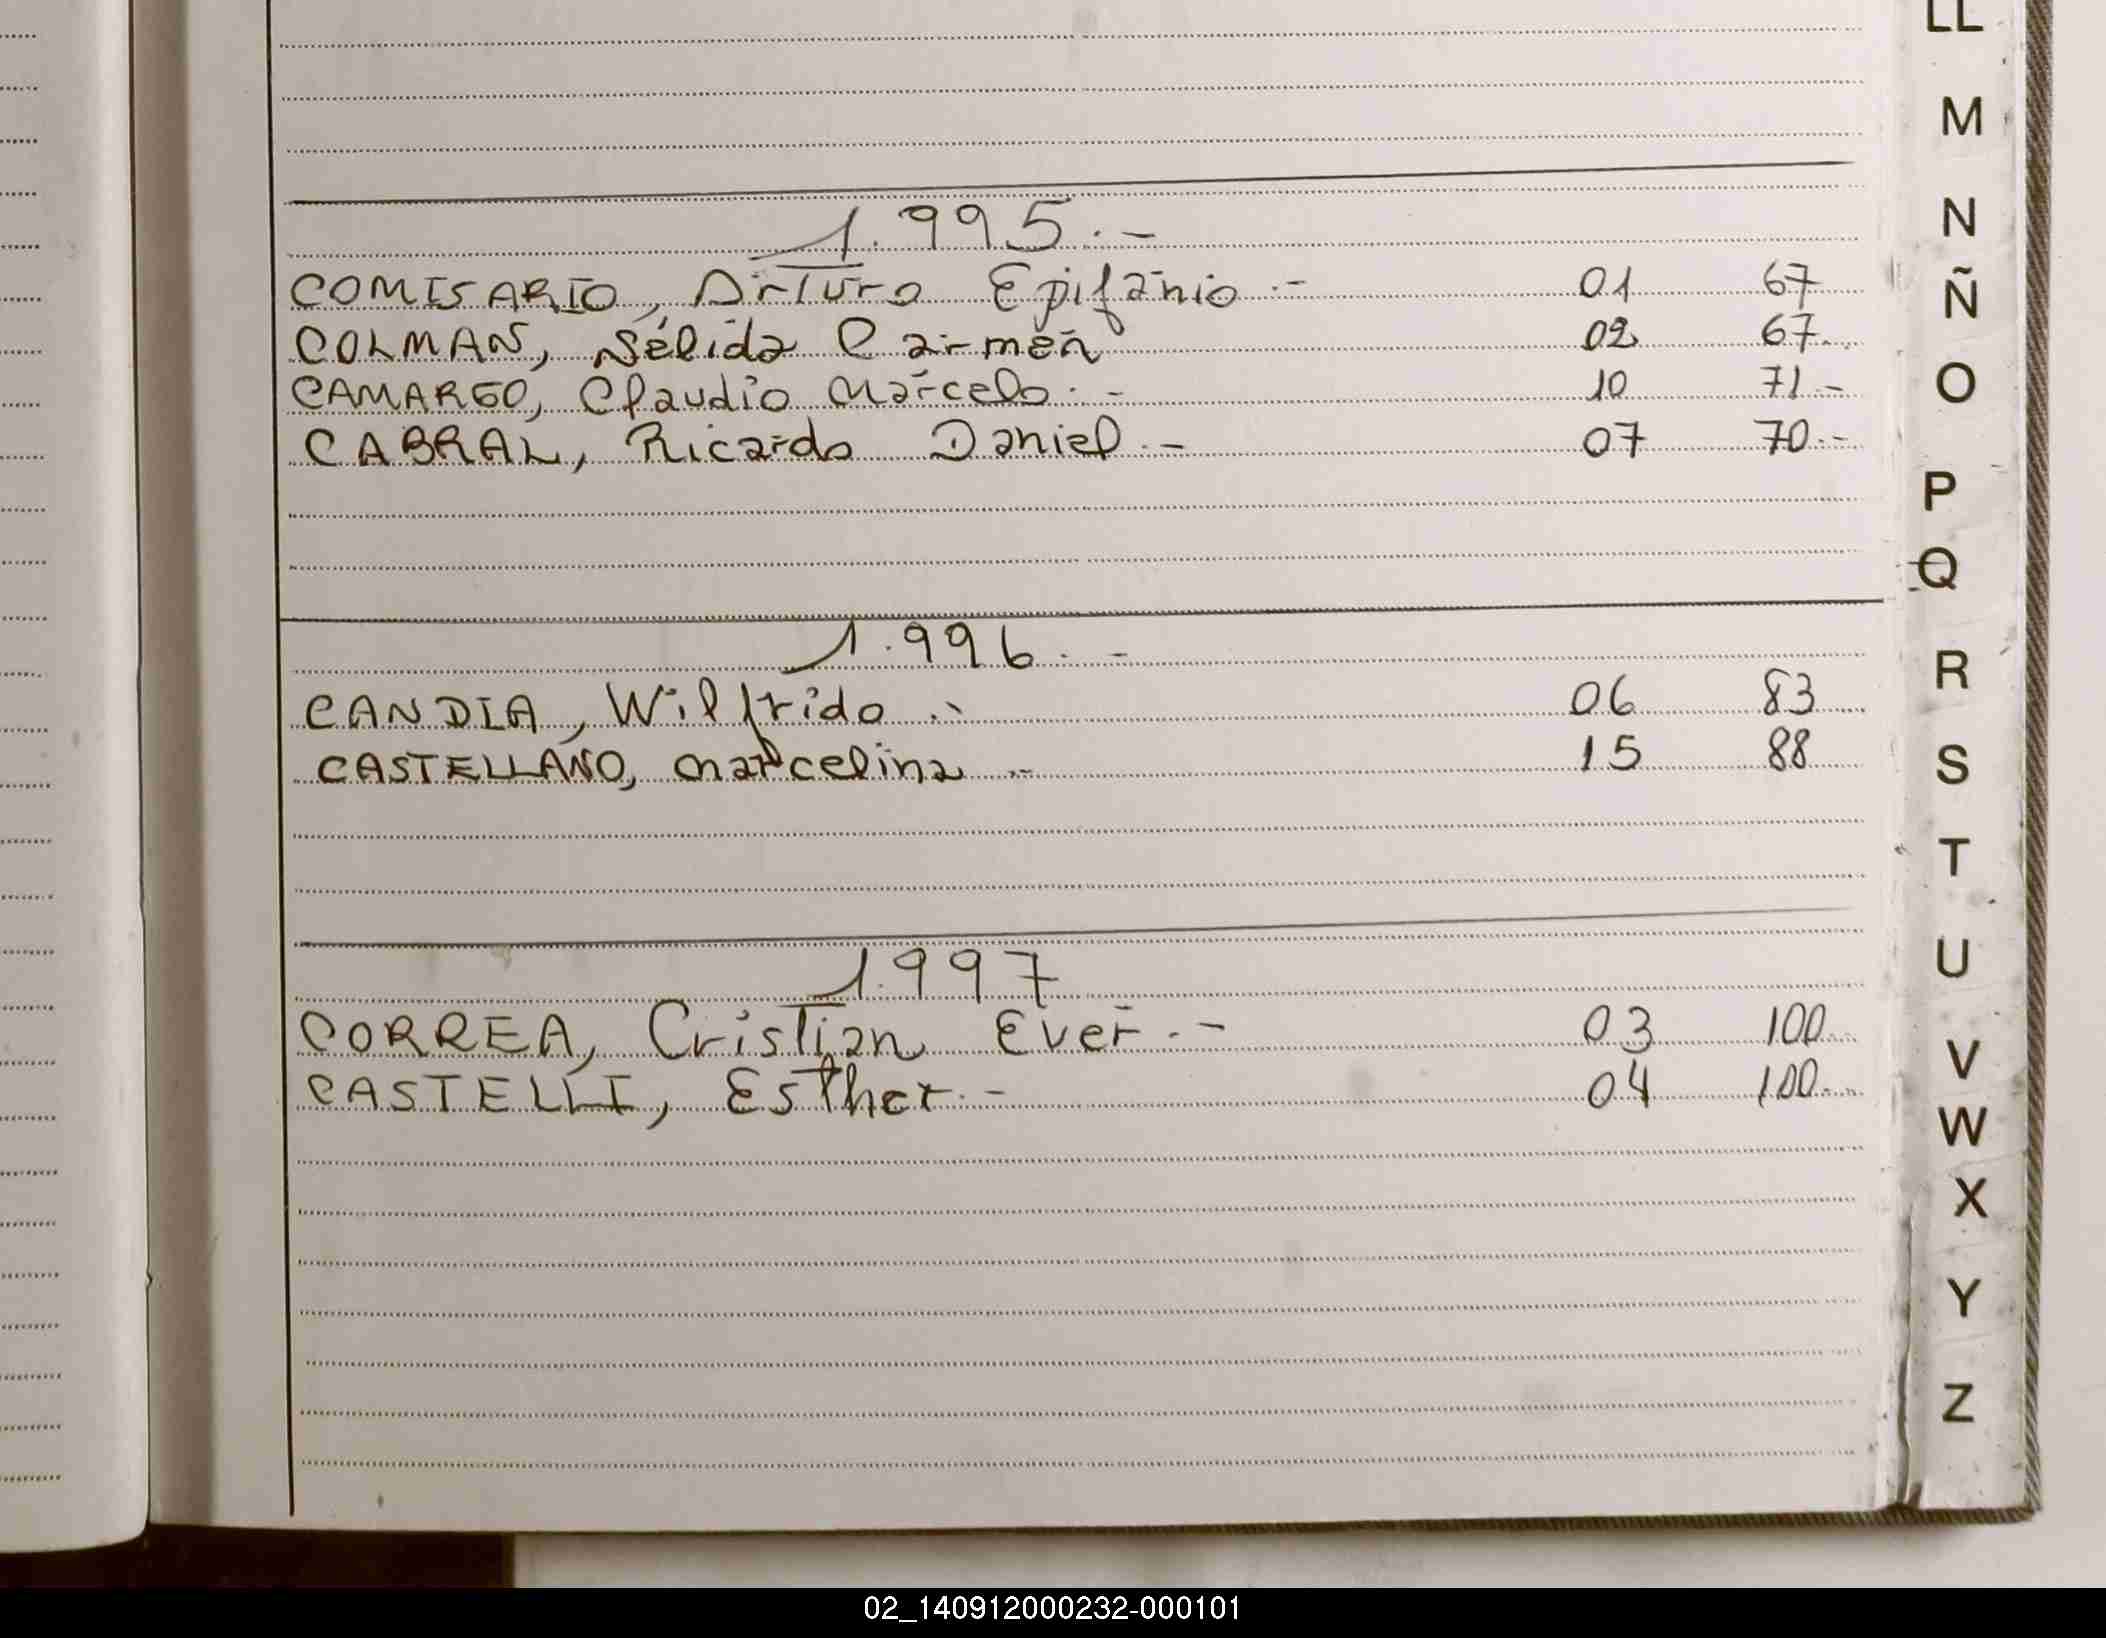 1.995.-
COMISARIO, Arturo Epifanio.- 01 67
COLMAN, Nélida Carmen 02 67
CAMARGO, Claudio Marcelo.- 10 71.-
CABRAL, Ricardo Daniel.- 07 70.-
1.996.-
CANDIA, Wilfrido.- 06 83
CASTELLANO, Marcelina.- 15 88
1.997
CORREA, Cristian Ever.- 03 100
CASTELLI, Esther.- 04 100.-
LL
M
N
Ñ
O
P
Q
R
S
T
U
V
W
X
Y
Z
02_140912000232-000101